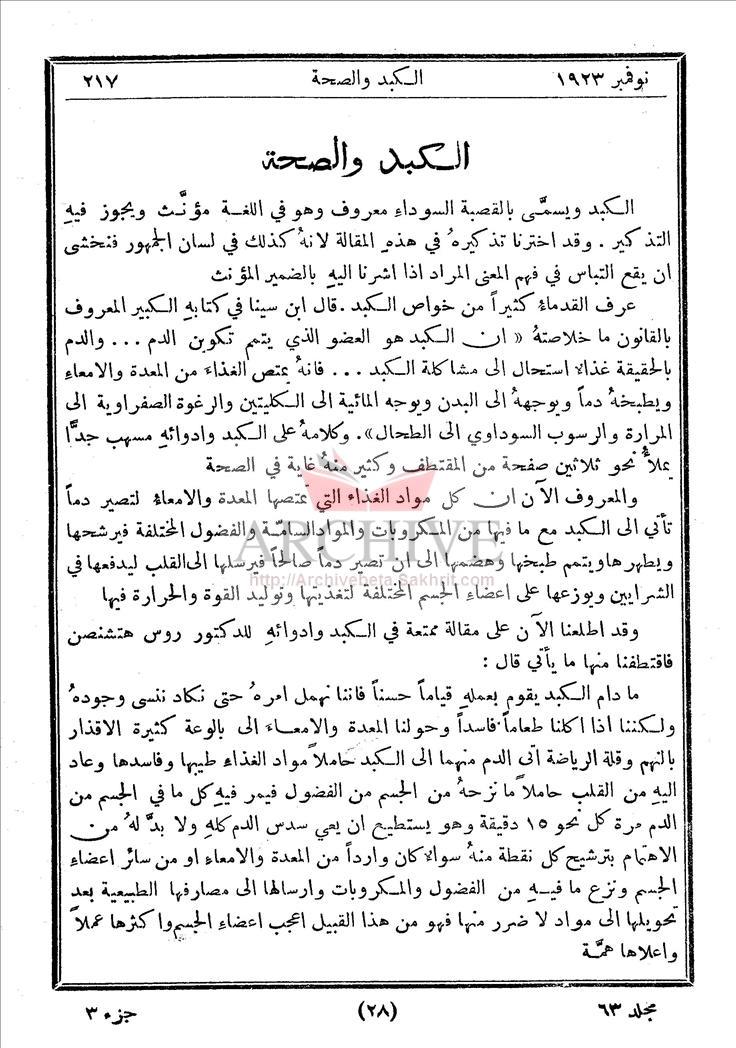 نوفمبر ١٩٢٣ الكبد والصحة ٢١٧
الكبد والصحة
الكبد ويسمَّى بالقصبة السوداءِ معروف وهو في اللغة مؤنَّث ويجوز فيهِ
التذكير . وقد اخترنا تذكيرهُ في هذهِ المقالة لانهُ كذلك في لسان الجمهور فنخشى
ان يقع التباس في فهم المعنى المراد اذا اشرنا اليهِ بالضمير المؤنث
عرف القدماءُ كثيراً من خواص الكبد . قال ابن سينا في كتابهِ الكبير المعروف
بالقانون ما خلاصتهُ « ان الكبد هو العضو الذي يتمم تكوين الدم ... والدم
بالحقيقة غذاء استحال الى مشاكلة الكبد ... فانهُ يمتص الغذاءَ من المعدة والامعاءِ
ويطبخهُ دماً ويوجههُ الى البدن ويوجه المائية الى الكليتين والرغوة الصفراوية الى
المرارة والرسوب السوداوي الى الطحال» . وكلامهُ على الكبد وادوائهِ مسهب جدًّا
يملأُ نحو ثلاثين صفحة من المقتطف وكثير منهُ غاية في الصحة
والمعروف الآن ان كل مواد الغذاء التي تمتصها المعدة والامعاءُ لتصير دماً
تأتي الى الكبد مع ما فيها من المكروبات والمواد السامَّة والفضول المختلفة فيرشحها
ويطهرها ويتمم طبخها وهضمها الى ان تصير دماً صالحاً فيرسلها الى القلب ليدفعها في
الشرايين ويوزعها على اعضاءِ الجسم المختلفة لتغذيتها وتوليد القوة والحرارة فيها
وقد اطلعنا الآن على مقالة ممتعة في الكبد وادوائهِ للدكتور روس هتشنصن
فاقتطفنا منها ما يأتي قال :
ما دام الكبد يقوم بعملهِ قياماً حسناً فاننا نهمل امرهُ حتى نكاد ننسى وجودهُ
ولكننا اذا اكلنا طعاماً فاسداً وحولنا المعدة والامعاء الى بالوعة كثيرة الاقذار
بالنهم وقلة الرياضة اتى الدم منهما الى الكبد حاملاً مواد الغذاءِ طيبها وفاسدها وعاد
اليهِ من القلب حاملاً ما نزحهُ من الجسم من الفضول فيمر فيهِ كل ما في الجسم من
الدم مرة كل نحو ١٥ دقيقة وهو يستطيع ان يعي سدس الدم كلهِ ولا بدَّ لهُ من
الاهتمام بترشيح كل نقطة منهُ سواء كان وارداً من المعدة والامعاءِ او من سائر اعضاءِ
الجسم ونزع ما فيهِ من الفضول والمكروبات وارسالها الى مصارفها الطبيعية بعد
تحويلها الى مواد لا ضرر منها فهو من هذا القبيل اعجب اعضاءِ الجسم واكثرها عملاً
واعلاها همَّة
مجلد ٦٣ (٢٨) جزء ٣
ARCHIVE
http://Archivebeta.Sakhrit.com